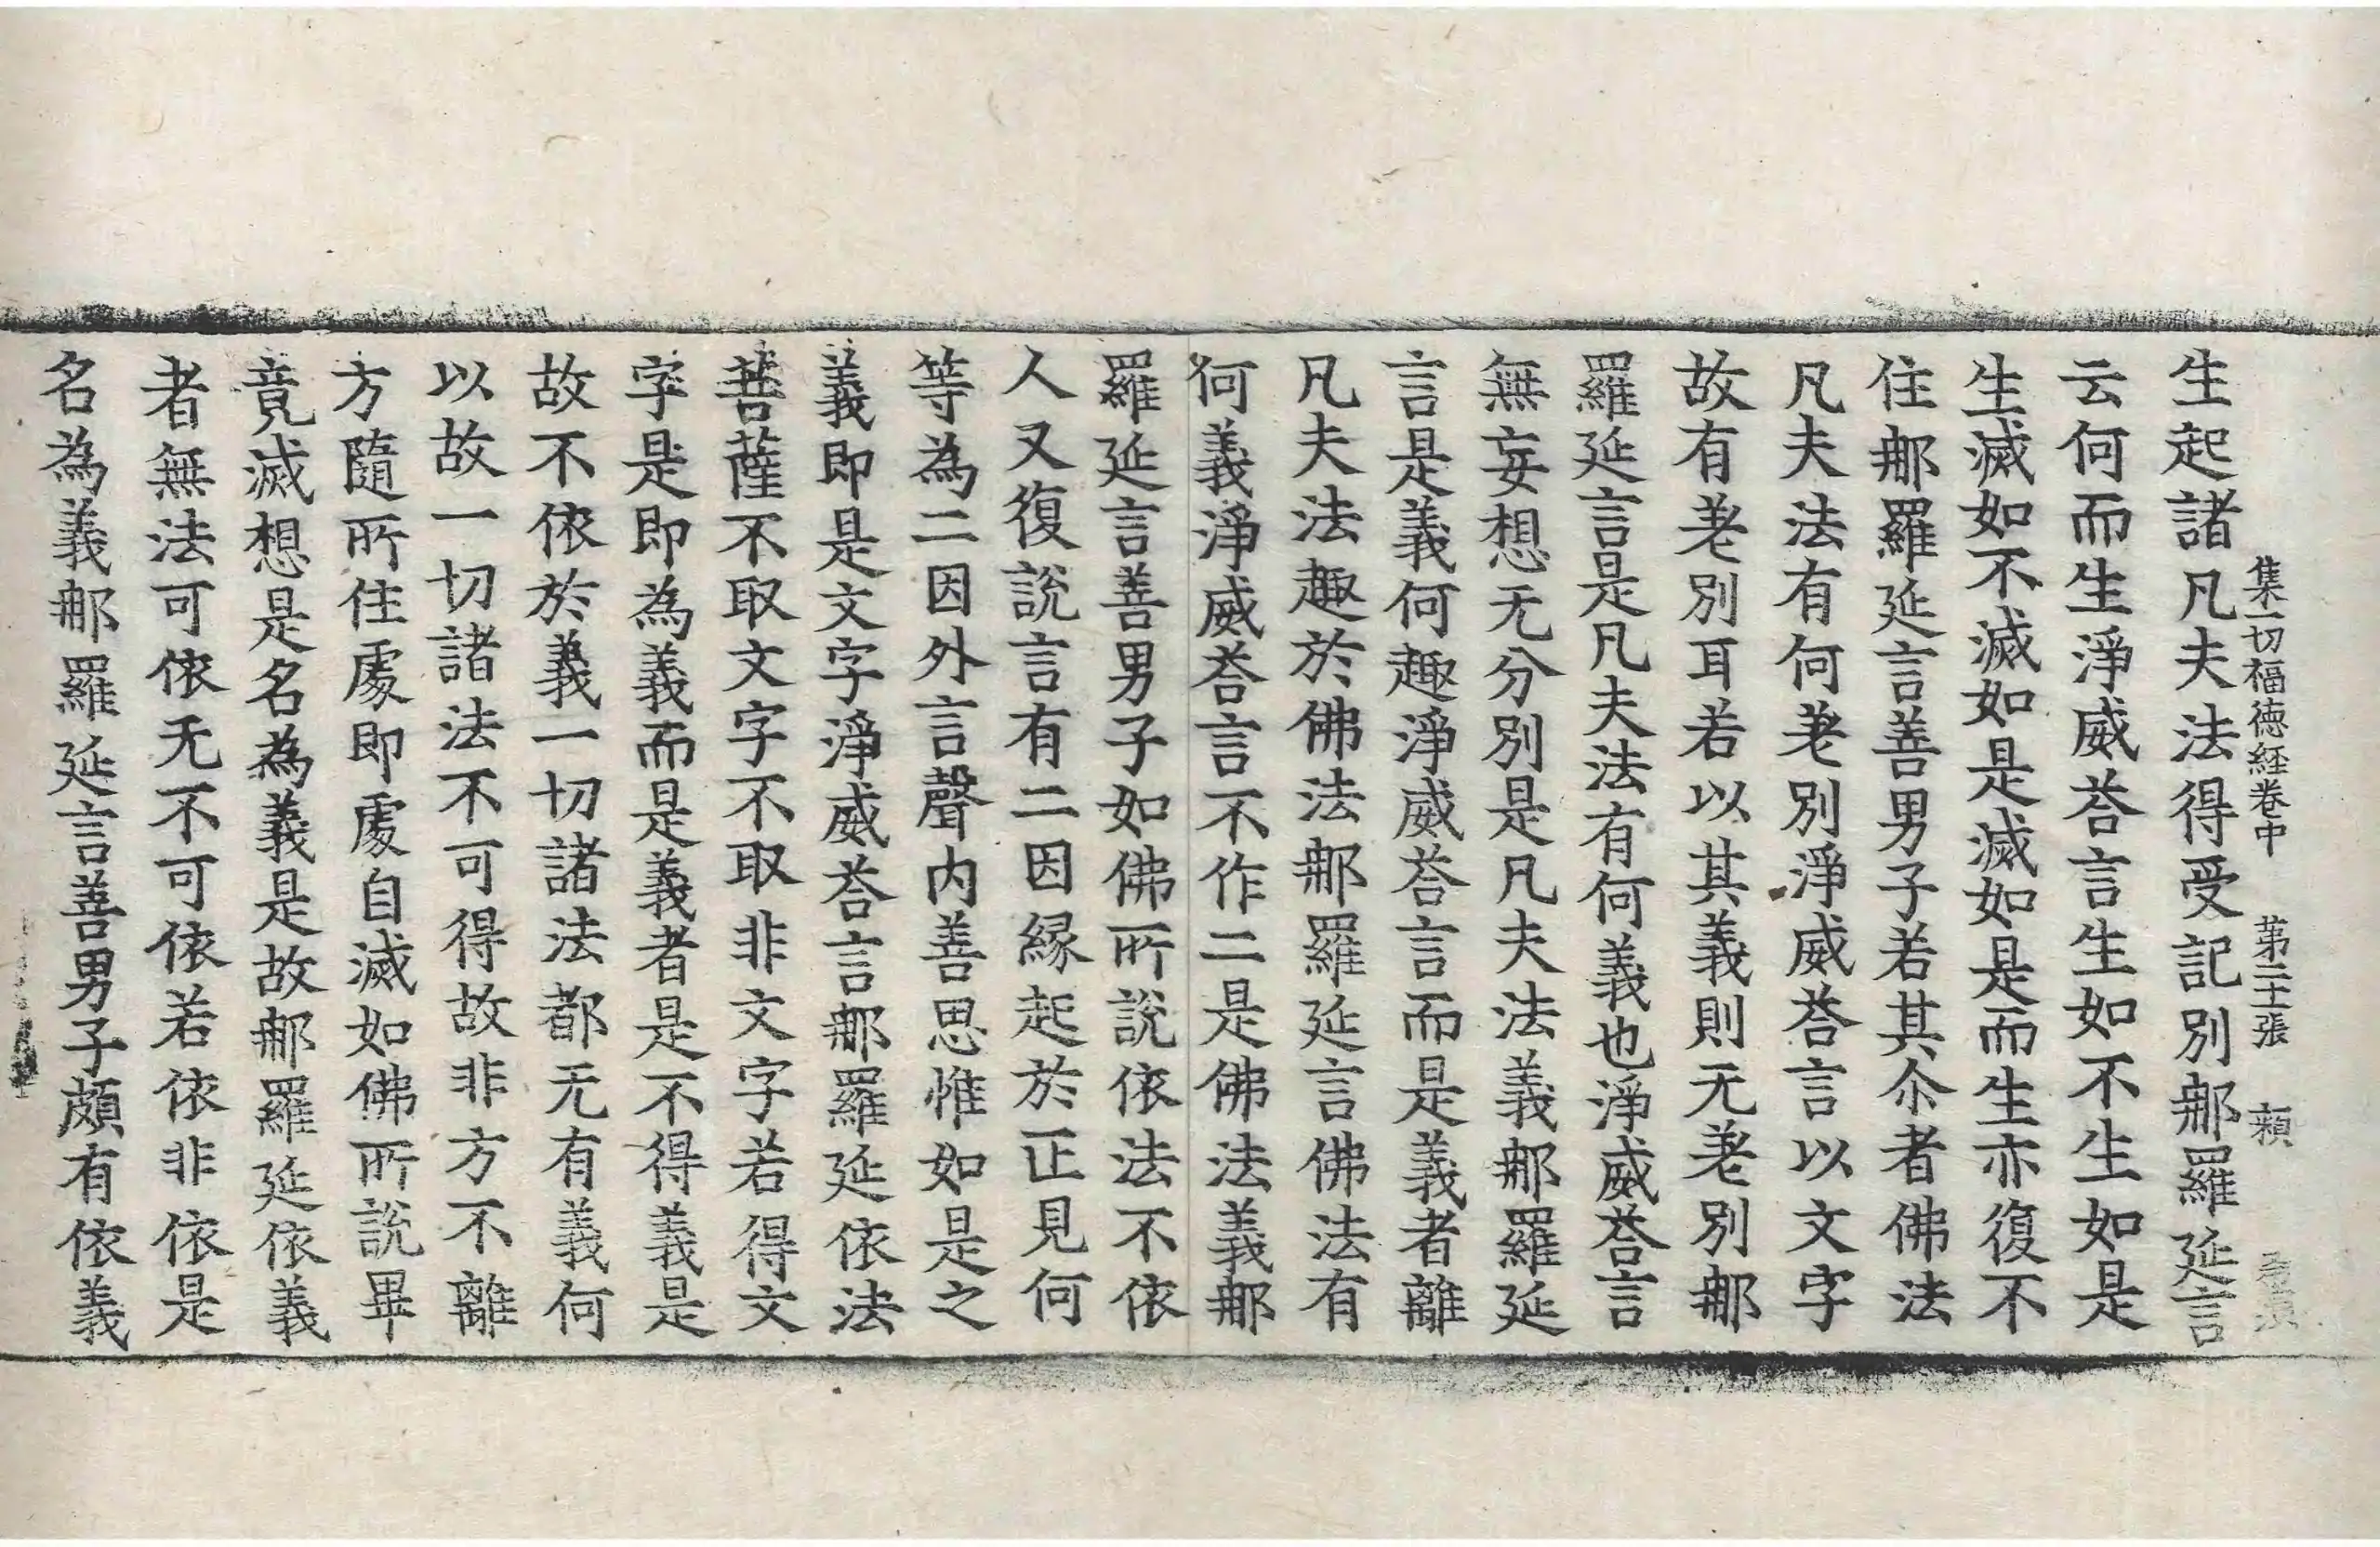 集一切福德経卷中 第二十張 頼
生起諸凡夫法得受記別郍羅延言
云何而生淨威荅言生如不生如是
生滅如不滅如是滅如是而生亦復不
住郍羅延言善男子若其尒者佛法
凡夫法有何差別淨威荅言以文字
故有差別耳若以其義則无差別郍
羅延言是凡夫法有何義也淨威荅言
無妄想无分別是凡夫法義郍羅延
言是義何趣淨威荅言而是義者離
凡夫法趣於佛法郍羅延言佛法有
何義淨威荅言不作二是佛法義郍
羅延言善男子如佛所說依法不依
人又復說言有二因緣起於正見何
等為二因外言聲内善思惟如是之
義即是文字淨威荅言郍羅延依法
菩薩不取文字不取非文字若得文
字是即為義而是義者是不得義是
故不依於義一切諸法都无有義何
以故一切諸法不可得故非方不離
方隨所住處即處自滅如佛所說畢
竟滅想是名為義是故郍羅延依義
者無法可依无不可依若依非依是
名為義郍羅延言善男子頗有依義